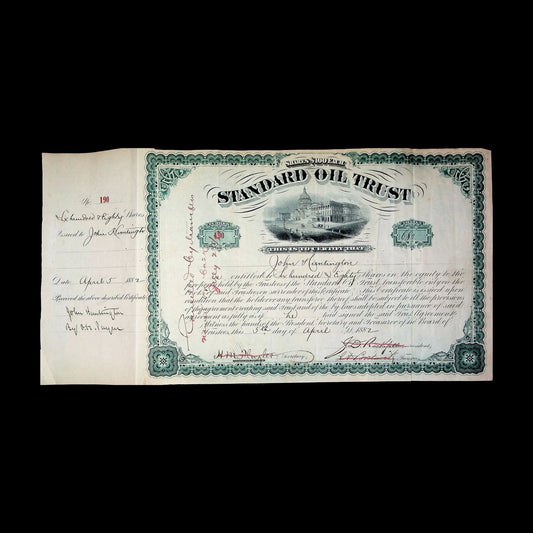 No 190
Six hundred & Eighty Shares
Issued to John Huntington
Date April 5 1882
Received the above described Certificate
John Huntington
By
SHARES $100 EACH
STANDARD OIL TRUST
190
THIS IS TO CERTIFY THAT
John Huntington
is entitled to Six hundred & Eighty Shares in the equity to the
property held by the Trustees of the Standard Oil Trust, transferable only on the
books of said Trustees on surrender of this Certificate. This Certificate is issued upon
condition that the holder or any transferee thereof shall be subject to all the provisions
of the agreement creating said Trust and of the by-laws adopted in pursuance of said
agreement as fully as if he had signed the said Trust Agreement.
Witness the hands of the President, Secretary and Treasurer of the Board of
Trustees, this 5th day of April A.D. 1882
Secretary
President
Treasurer
Cancelled by transfer